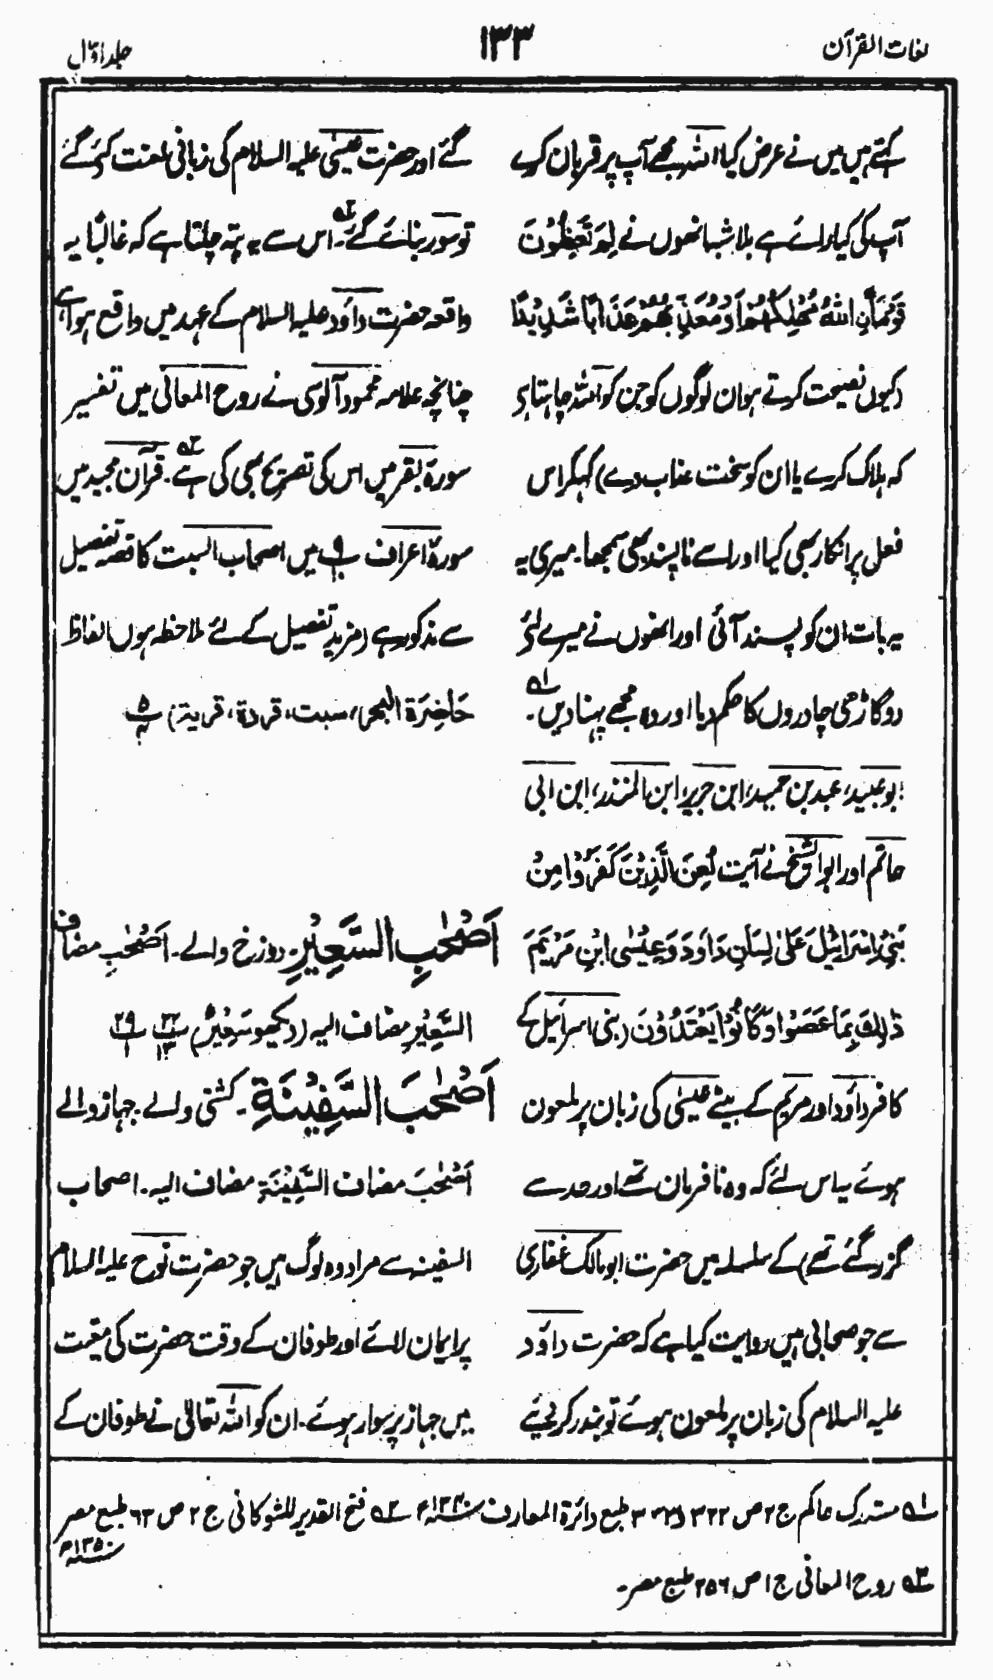 لغات القرآن
۱۳۳
جلد اول
کہتے ہیں میں نے عرض کیا اللہ مجھے آپ پر قربان کرے
آپ کی کیا رائے ہے بلاشبہ انھوں نے لِمَ تَعِظُوْنَ
قَوْمَانِ اللّٰهُ مُهْلِكُهُمْ اَوْ مُعَذِّبُهُمْ عَذَابًا شَدِيْدًا
(کیوں نصیحت کرتے ہو ان لوگوں کو جن کو اللہ چاہتا ہی
کہ ہلاک کرے یا ان کو سخت عذاب دے) کہکر اس
فعل پر انکار بھی کیا اور اسے ناپسند بھی سمجھا۔ میری یہ
یہ بات ان کو پسند آئی اور انھوں نے میرے لئے
دو گاڑھی چادروں کا حکم دیا اور وہ مجھے پہنا دیں۔ ۱؎
ابو عبید، عبد بن حمید، ابن جریر، ابن المنذر، ابن ابی
حاتم اور ابو الشیخ نے آیت لُعِنَ الَّذِيْنَ كَفَرُوْا مِنْ
بَنِيْ اِسْرَائِيْلَ عَلٰى لِسَانِ دَاوٗدَ وَعِيْسَى ابْنِ مَرْيَمَ
ذٰلِكَ بِمَا عَصَوْا وَكَانُوْا يَعْتَدُوْنَ (بنی اسرائیل کے
کافر داؤد اور مریم کے بیٹے عیسیٰ کی زبان پر ملعون
ہوئے یہ اس لئے کہ وہ نافرمان تھے اور حد سے
گزر گئے تھے) کے سلسلہ میں حضرت ابو مالک غفاری
سے جو صحابی ہیں روایت کیا ہے کہ حضرت داؤد
علیہ السلام کی زبان پر ملعون ہوئے تو بندر کردیئے
گئے اور حضرت عیسیٰ علیہ السلام کی زبانی لعنت کئے گئے
تو سور بنائے گئے۔ ۲؎ اس سے یہ پتہ چلتا ہے کہ غالبًا یہ
واقعہ حضرت داؤد علیہ السلام کے عہد میں واقع ہوا ہے
چنانچہ علامہ محمود آلوسی نے روح المعانی میں تفسیر
سورۂ بقر میں اس کی تصریح بھی کی ہے ۳؎۔ قرآن مجید میں
سورۂ اعراف ۹ میں اصحاب السبت کا قصہ تفصیل
سے مذکور ہے (مزید تفصیل کے لئے ملاحظہ ہوں الفاظ
حَاضِرَةَ البحر، سبت، قردۃ، قریۃ)
اَصْحٰبِ السَّعِيْرِ۔ دوزخ والے۔ اَصْحٰبِ مضاف
السَّعِيْرِ مضاف الیہ (دیکھو سَعِيْرٌ) ۲۲/۱۳ ۲۹/۱
اَصْحٰبَ السَّفِيْنَةِ۔ کشتی والے۔ جہاز والے
اَصْحٰبَ مضاف السَّفِيْنَةِ مضاف الیہ۔ اصحاب
السفینہ سے مراد وہ لوگ ہیں جو حضرت نوح علیہ السلام
پر ایمان لائے اور طوفان کے وقت حضرت کی معیت
میں جہاز پر سوار ہوئے۔ ان کو اللہ تعالیٰ نے طوفان کے
۱؎ مستدرک حاکم ج ۲ ص ۳۲۲ و ۳۲۳ طبع دائرۃ المعارف ۱۳۴۰ھ ۲؎ فتح القدیر للشوکانی ج ۲ ص ۶۳ طبع مصر ۱۳۵۰ھ
۳؎ روح المعانی ج ۱ ص ۲۵۶ طبع مصر۔